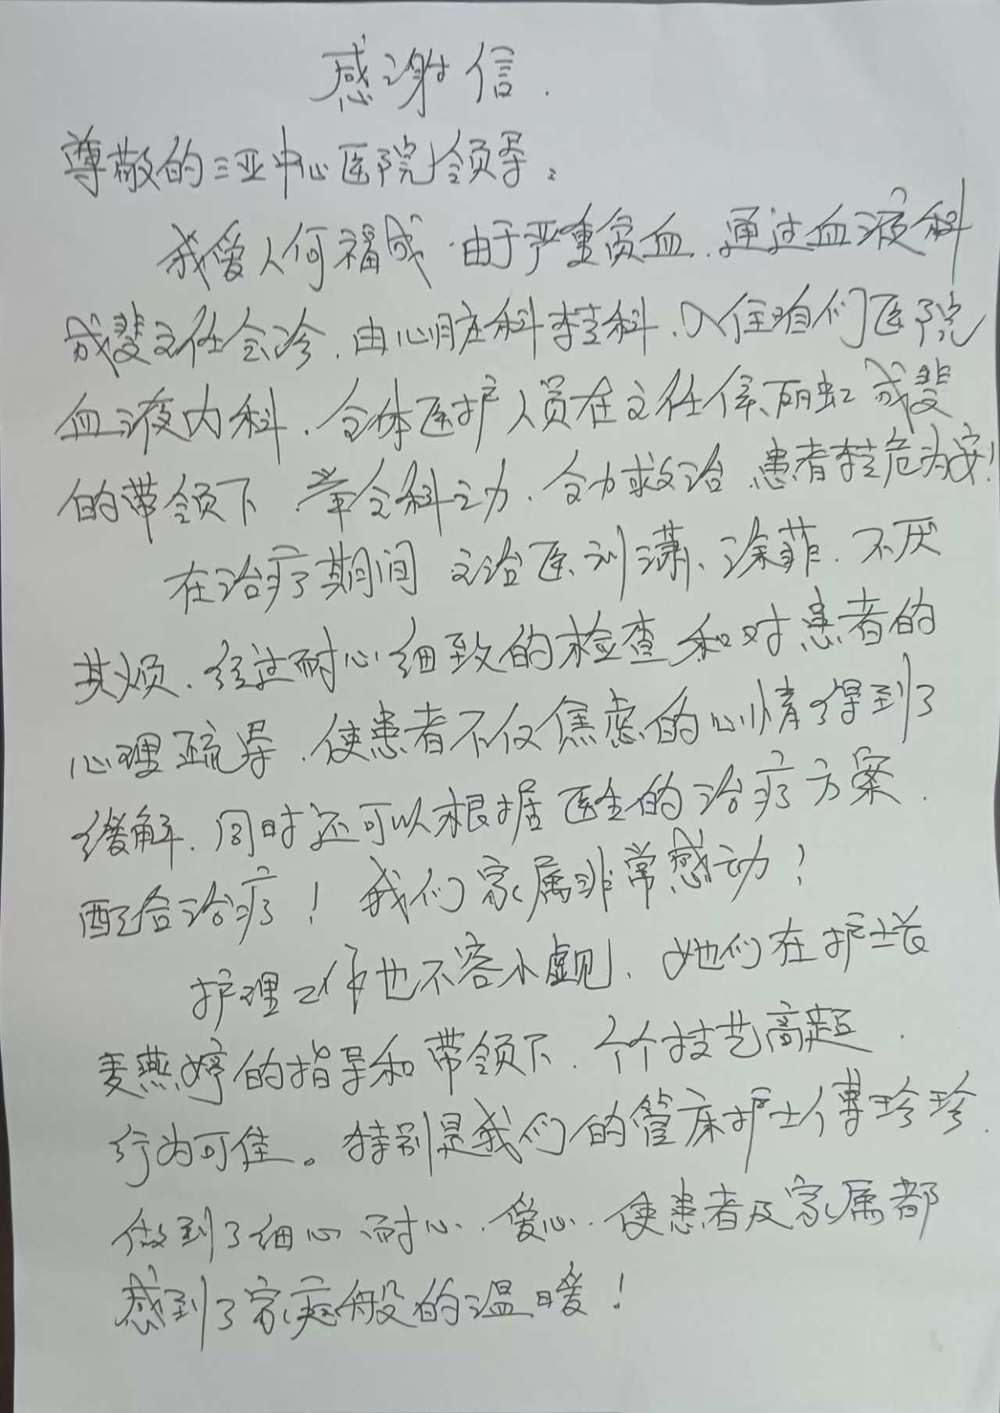 感谢信.
尊敬的三亚中心医院领导：
我爱人何福成.由于严重贫血.通过血液科
成斐主任会诊.由心脏科转科.入住咱们医院
血液内科.全体医护人员在主任侯丽虹 成斐
的带领下.举全科之力.全力救治.患者转危为安!
在治疗期间 主治医.刘潇、涂菲.不厌
其烦.经过耐心细致的检查和对患者的
心理疏导.使患者不仅焦虑的心情得到了
缓解.同时还可以根据医生的治疗方案.
配合治疗！我们家属非常感动！
护理工作也不容小觑.她们在护士长
麦燕婷的指导和带领下.个个技艺高超.
行为可佳。特别是我们的管床护士傅珍珍.
做到了细心.耐心.爱心.使患者及家属都
感到了家庭般的温暖！